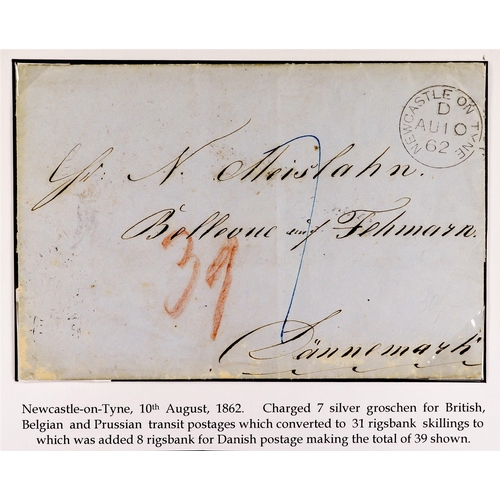 NEWCASTLE ON TYNE
D
AU 10
62
Hr. N. Meislahn.
Bellevue auf Fehmarn.
7
39
Dännemark
Newcastle-on-Tyne, 10th August, 1862. Charged 7 silver groschen for British,
Belgian and Prussian transit postages which converted to 31 rigsbank skillings to
which was added 8 rigsbank for Danish postage making the total of 39 shown.